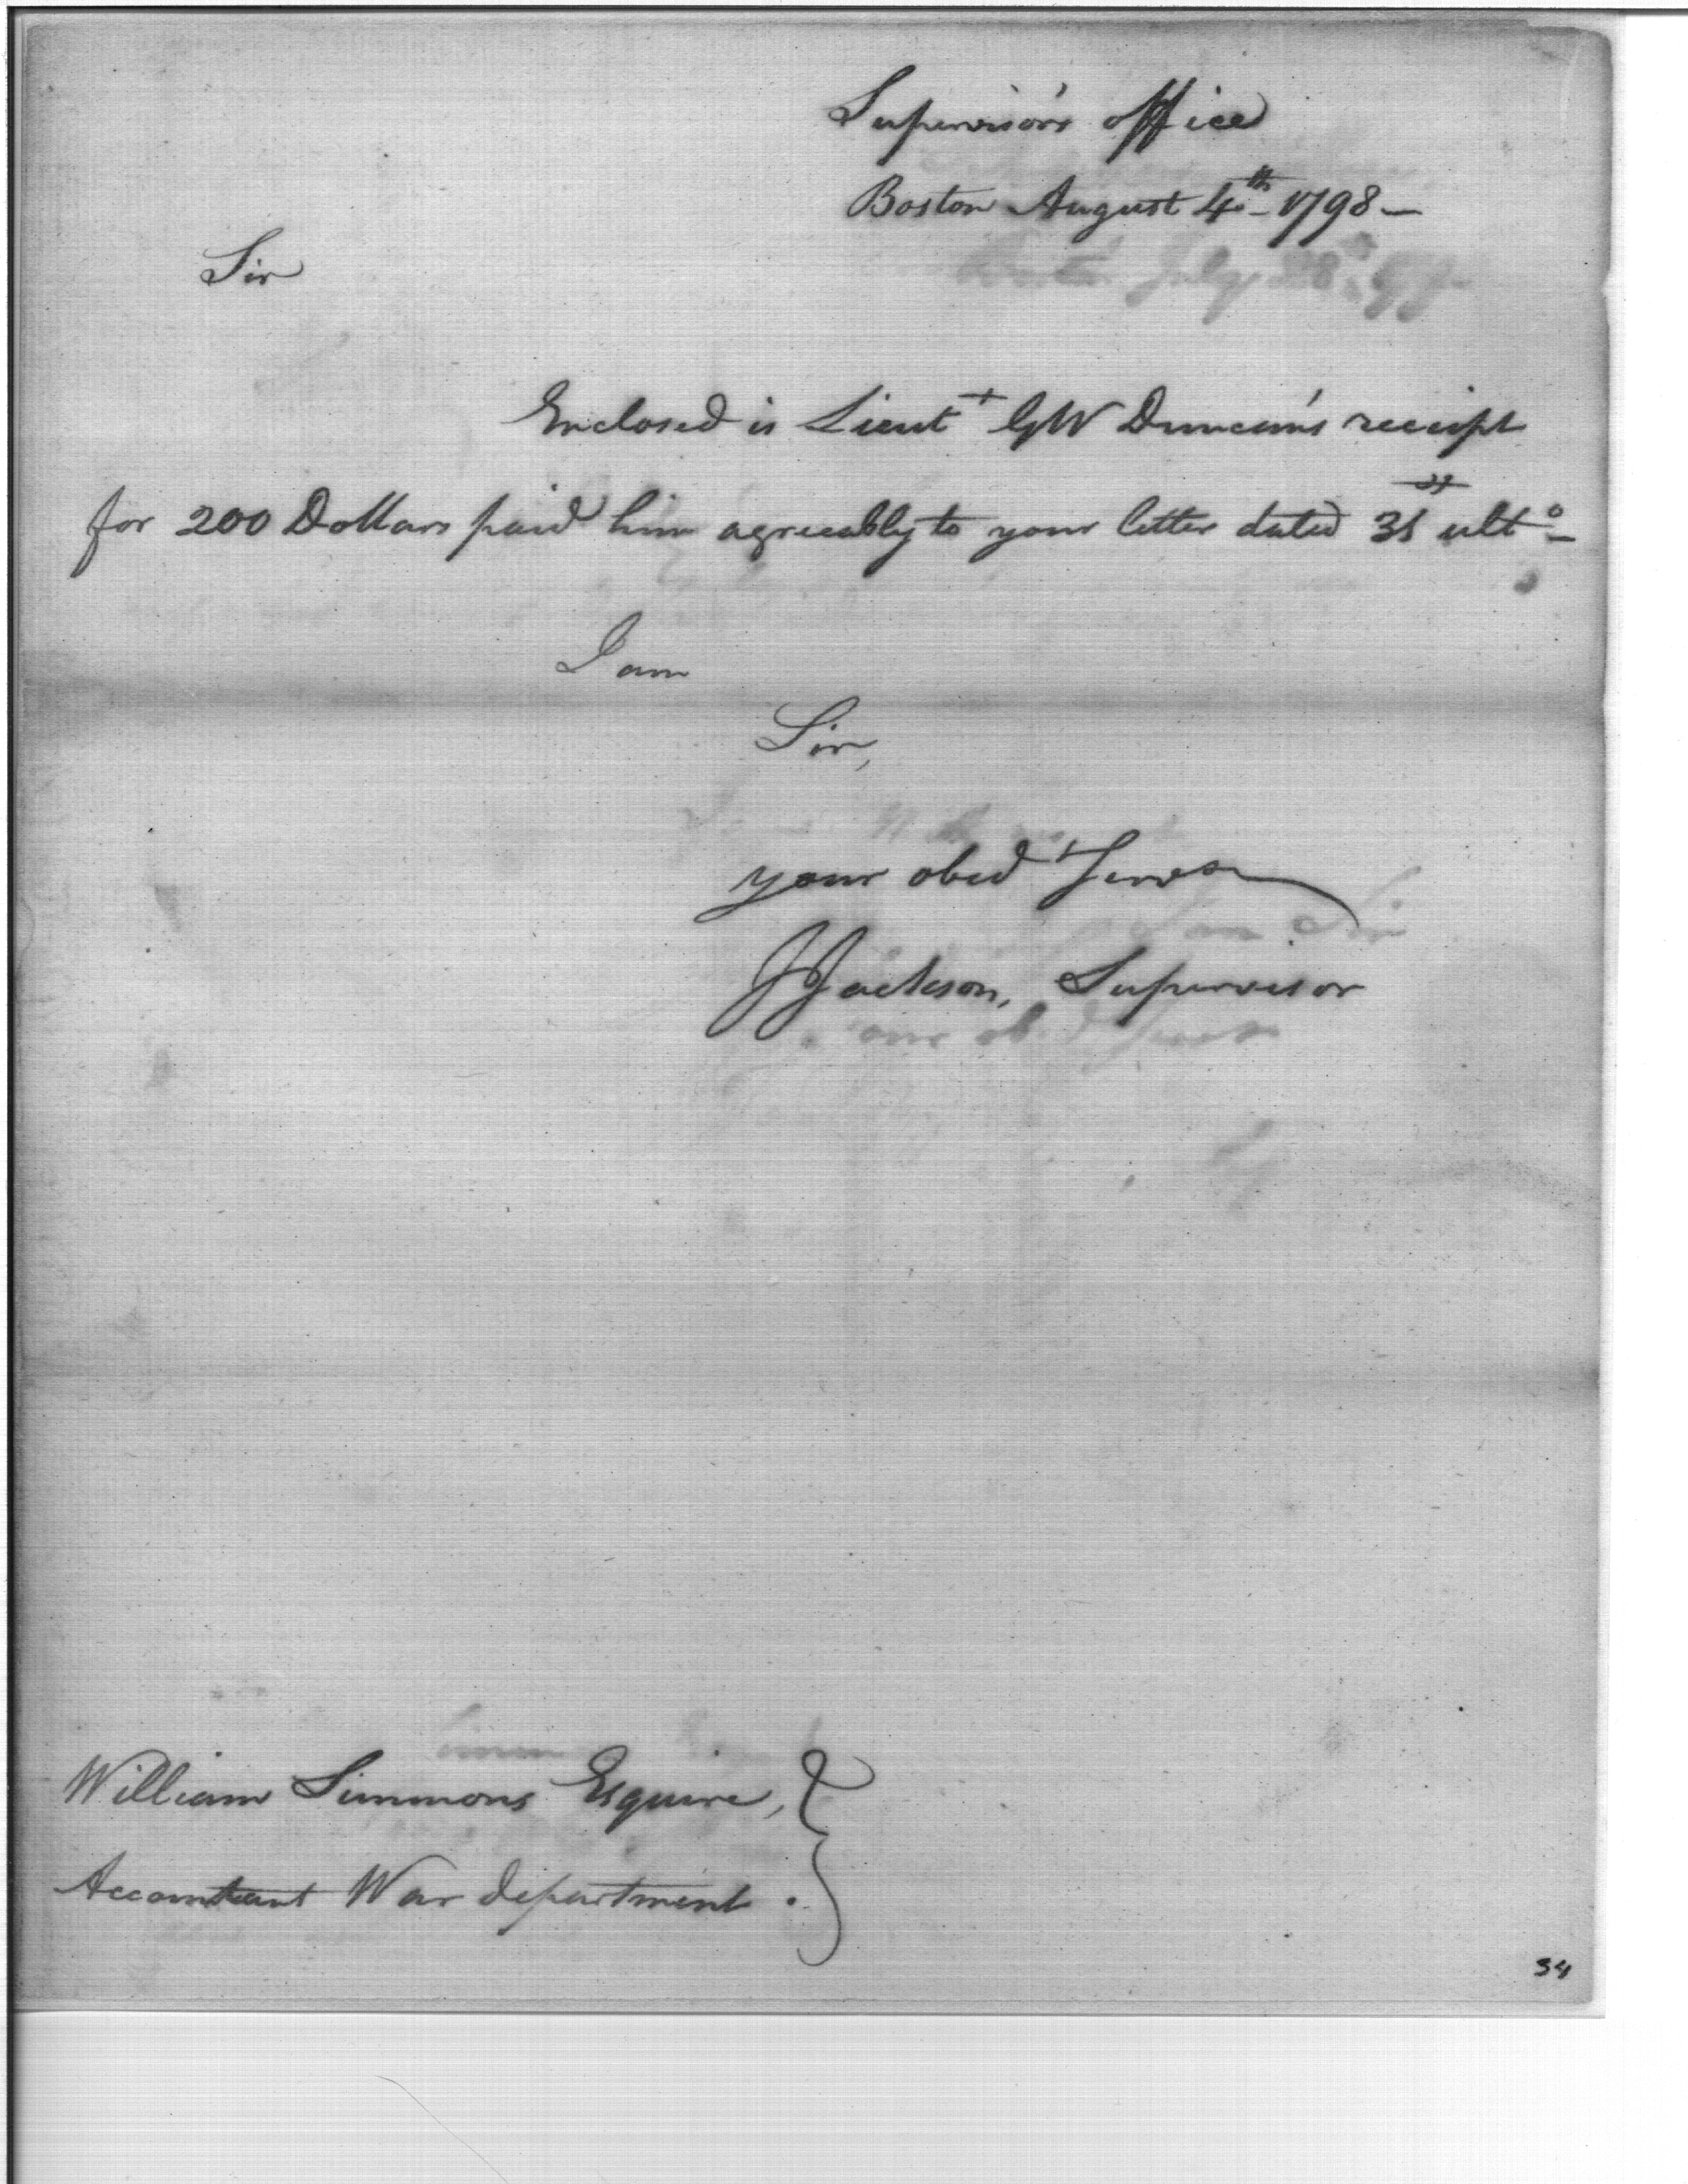 Supervisor's office
Boston August 4th 1798 —
Sir
Enclosed is Lieut GW Duncan's receipt
for 200 Dollars paid him agreeably to your letter dated 31 ulto
I am
Sir,
your obed Serv
J Jackson, Supervisor
William Simmons Esquire,
Accountant War department .
34